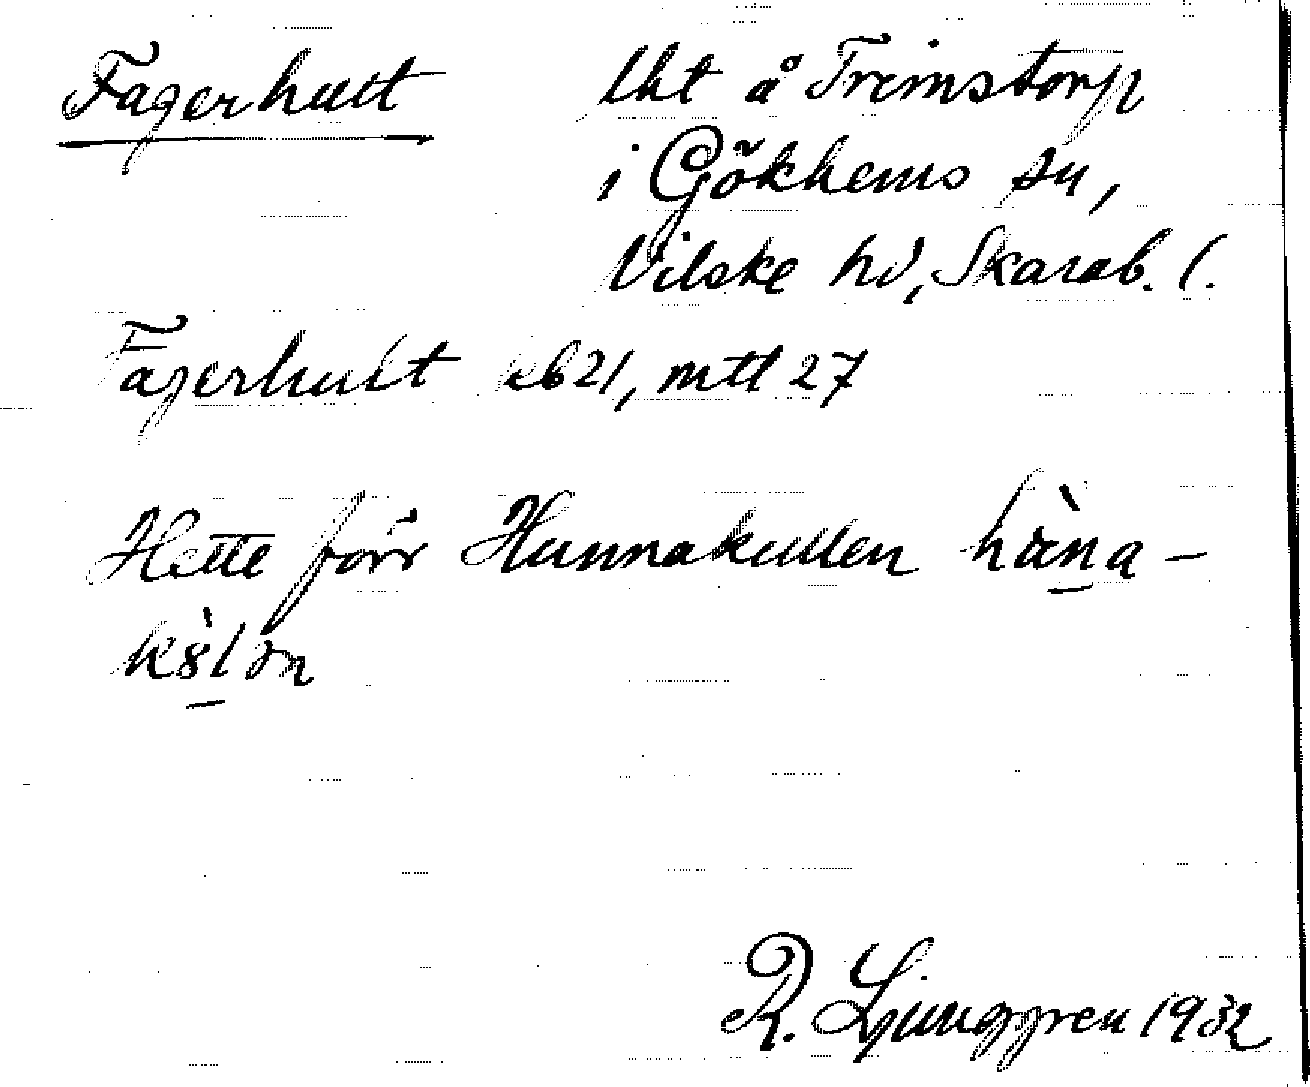 Fagerhult lht å Trimstorp
i Gökhems sn,
Vilske hd, Skarab. l.
Fagerhult eb 21, mtl 27
Hette förr Hunnakullen hàna-
kə̀lən
R. Ljunggren 1932